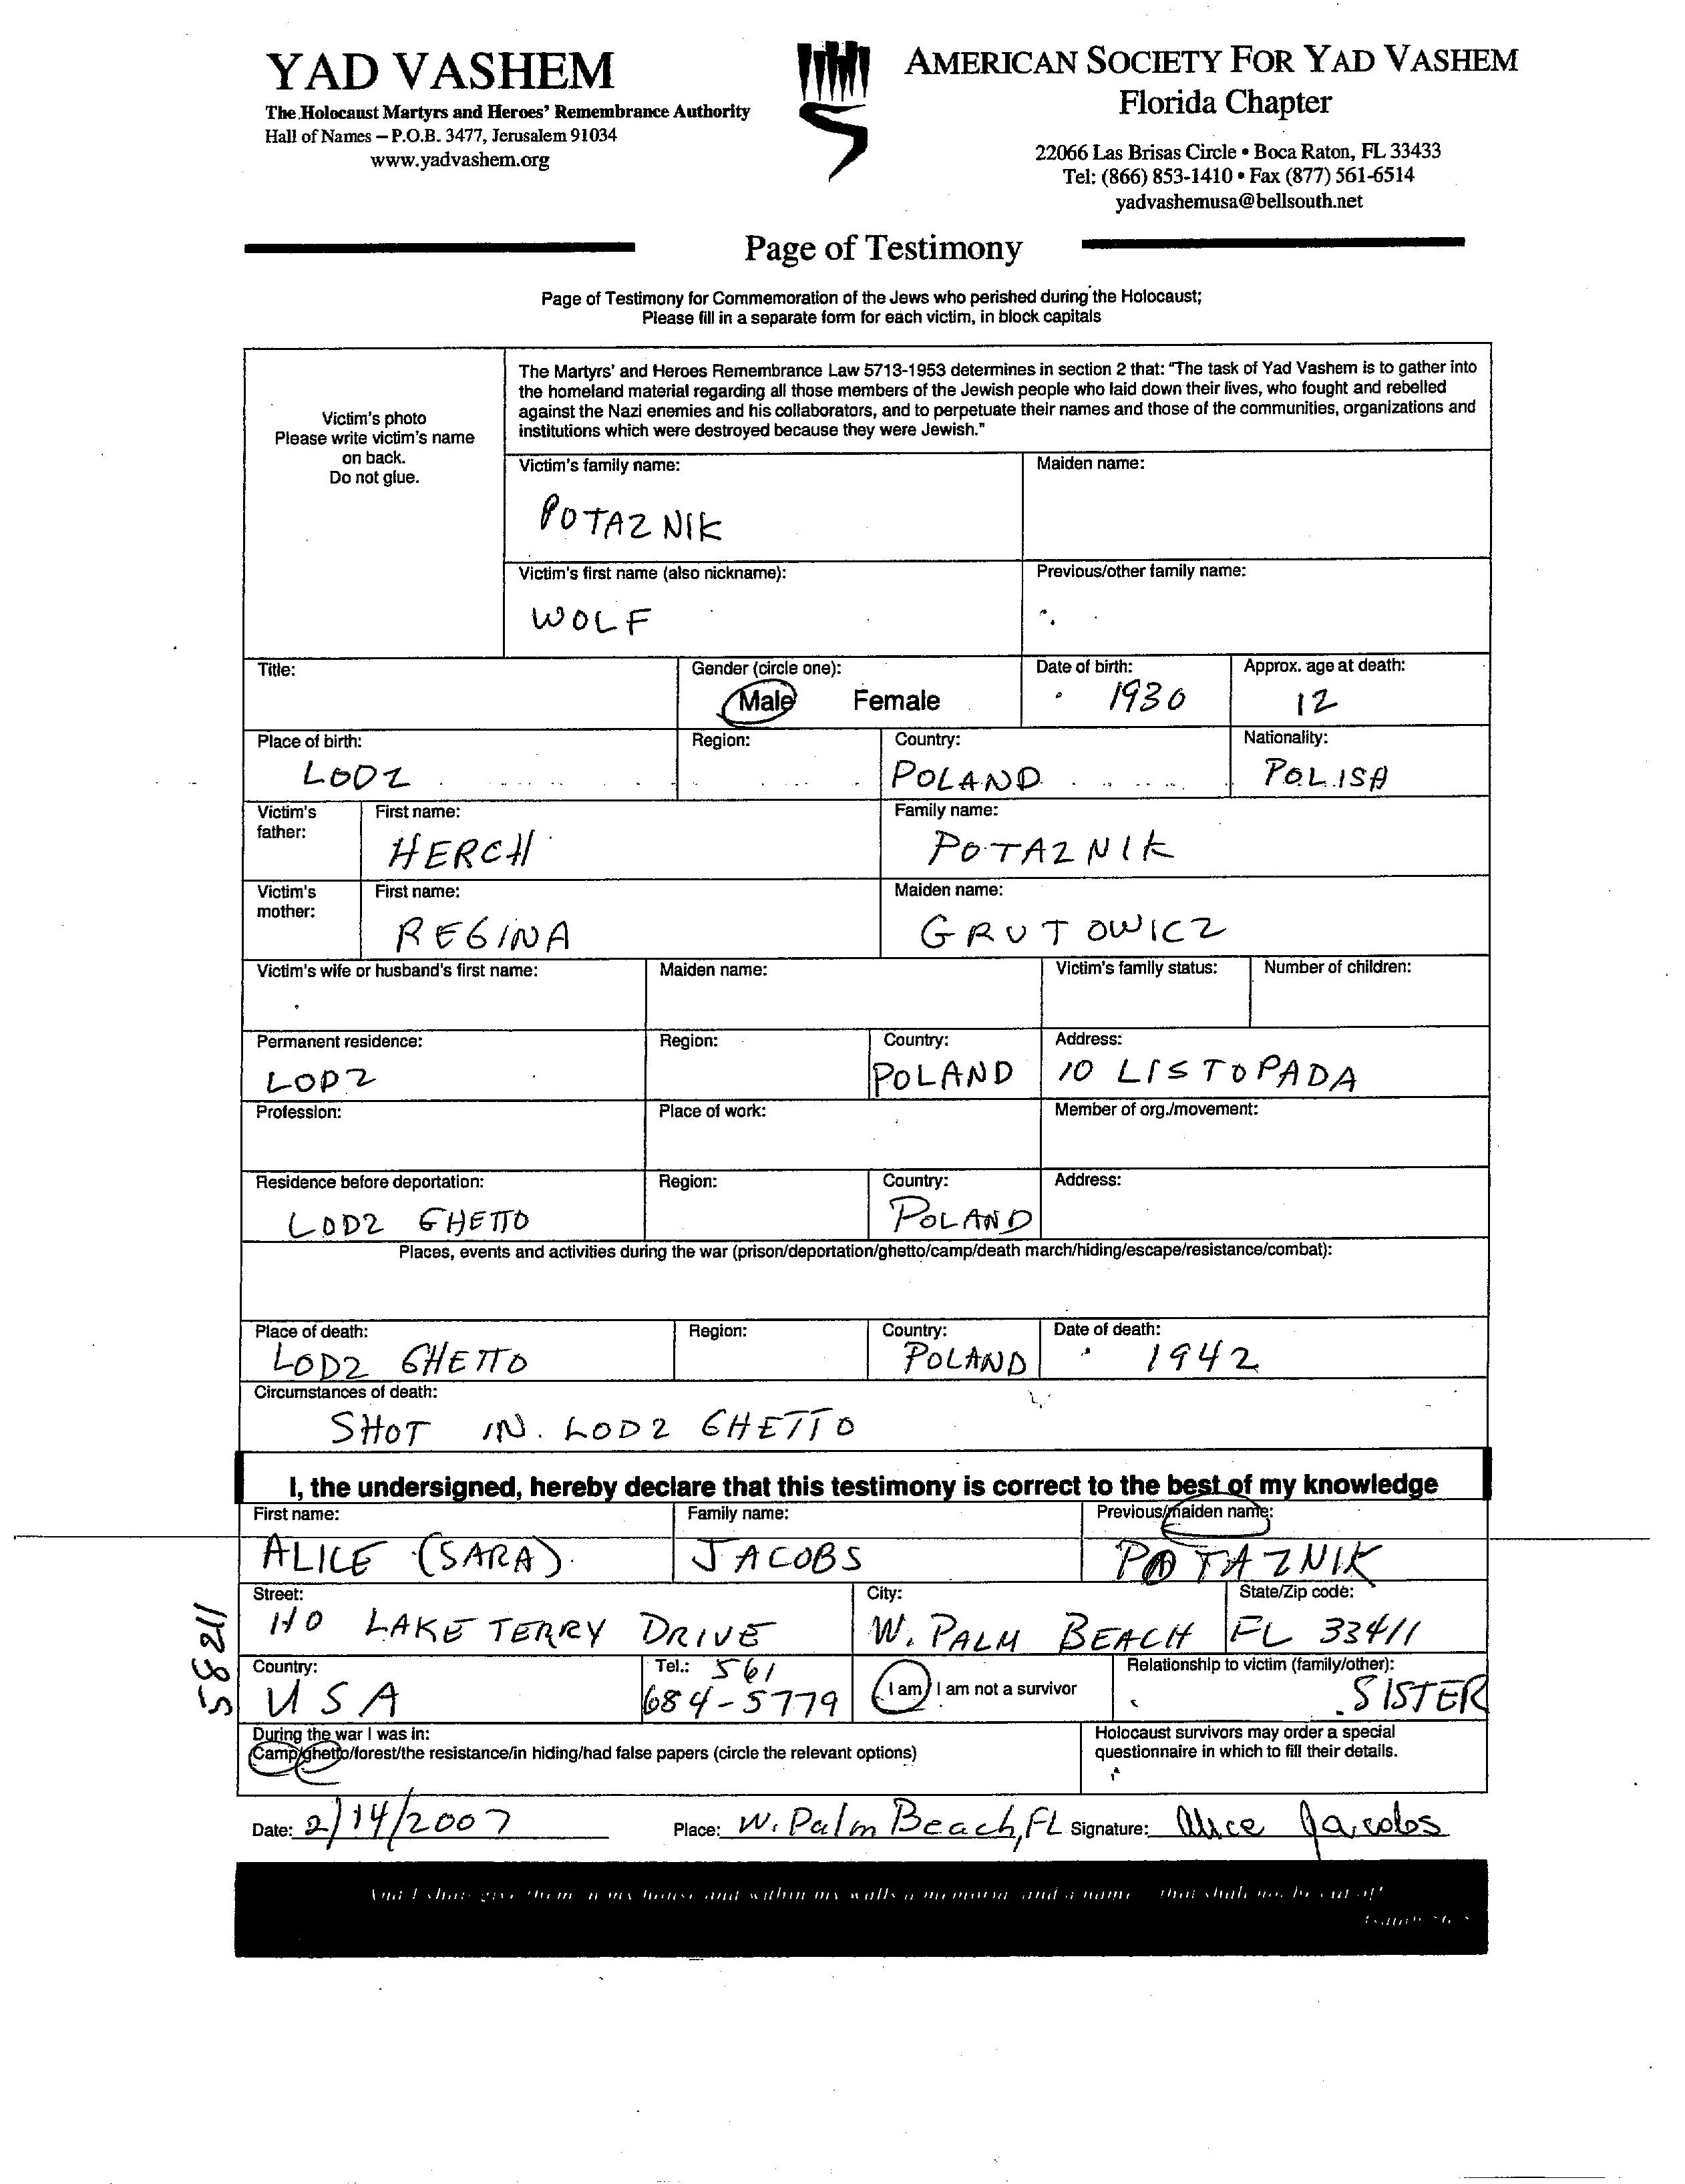 YAD VASHEM
The Holocaust Martyrs and Heroes' Remembrance Authority
Hall of Names – P.O.B. 3477, Jerusalem 91034
www.yadvashem.org
AMERICAN SOCIETY FOR YAD VASHEM
Florida Chapter
22066 Las Brisas Circle • Boca Raton, FL 33433
Tel: (866) 853-1410 • Fax (877) 561-6514
yadvashemusa@bellsouth.net
Page of Testimony
Page of Testimony for Commemoration of the Jews who perished during the Holocaust;
Please fill in a separate form for each victim, in block capitals
Victim's photo
Please write victim's name
on back.
Do not glue.
The Martyrs' and Heroes Remembrance Law 5713-1953 determines in section 2 that: "The task of Yad Vashem is to gather into
the homeland material regarding all those members of the Jewish people who laid down their lives, who fought and rebelled
against the Nazi enemies and his collaborators, and to perpetuate their names and those of the communities, organizations and
institutions which were destroyed because they were Jewish."
Victim's family name: Maiden name:
POTAZNIK
Victim's first name (also nickname): Previous/other family name:
WOLF
Title: Gender (circle one): Date of birth: Approx. age at death:
Male Female 1930 12
Place of birth: Region: Country: Nationality:
LODZ POLAND POLISH
Victim's father: First name: Family name:
HERCH POTAZNIK
Victim's mother: First name: Maiden name:
REGINA GRUTOWICZ
Victim's wife or husband's first name: Maiden name: Victim's family status: Number of children:
Permanent residence: Region: Country: Address:
LODZ POLAND 10 LISTOPADA
Profession: Place of work: Member of org./movement:
Residence before deportation: Region: Country: Address:
LODZ GHETTO POLAND
Places, events and activities during the war (prison/deportation/ghetto/camp/death march/hiding/escape/resistance/combat):
Place of death: Region: Country: Date of death:
LODZ GHETTO POLAND 1942
Circumstances of death:
SHOT IN LODZ GHETTO
I, the undersigned, hereby declare that this testimony is correct to the best of my knowledge
First name: Family name: Previous/maiden name:
ALICE (SARA) JACOBS POTAZNIK
Street: City: State/Zip code:
110 LAKE TERRY DRIVE W. PALM BEACH FL 33411
Country: Tel.: 561 Relationship to victim (family/other):
USA 684-5779 I am I am not a survivor SISTER
During the war I was in:
Camp/ghetto/forest/the resistance/in hiding/had false papers (circle the relevant options)
Holocaust survivors may order a special
questionnaire in which to fill their details.
Date: 2/14/2007 Place: W. Palm Beach, FL Signature: Alice Jacobs
And I shall give them in my house and within my walls a memorial and a name that shall not be cut off